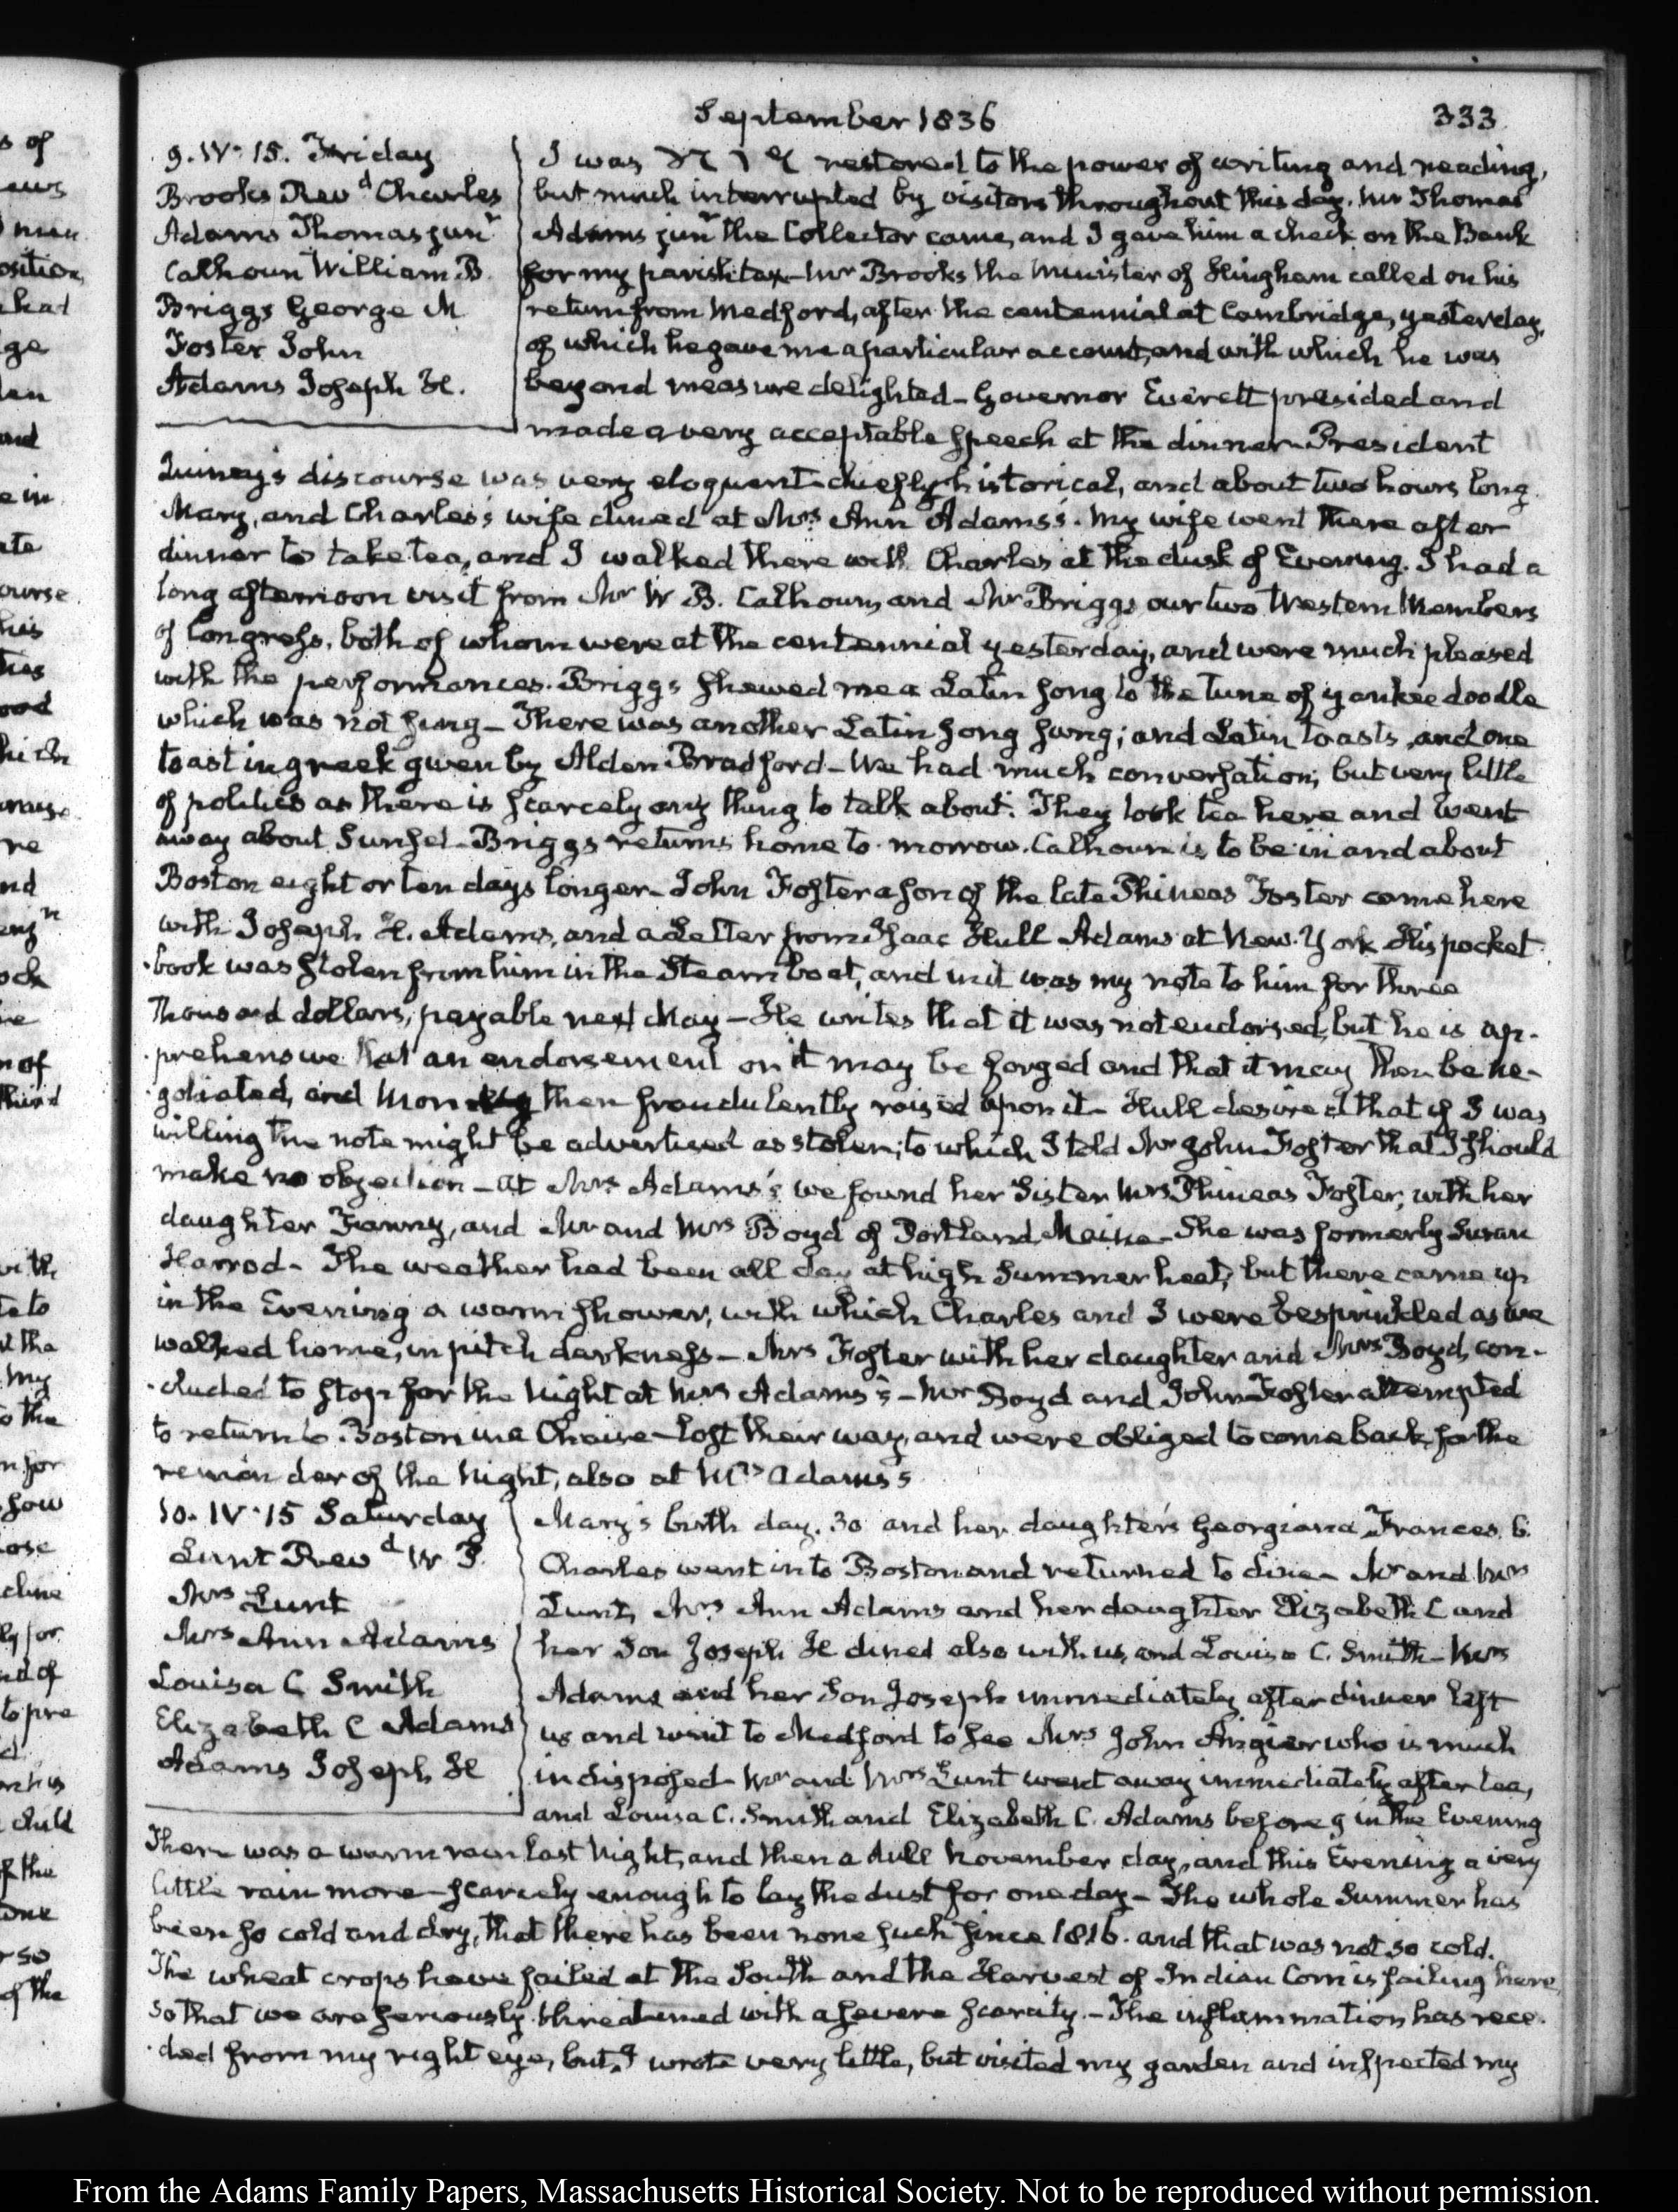 September 1836
333
9. IV. 15. Friday
Brooks Revd Charles
Adams Thomas junr
Calhoun William B.
Briggs George N
Foster John
Adams Joseph H.
I was restored to the power of writing and reading,
but much interrupted by visitors throughout this day. Mr Thomas
Adams junr the Collector came, and I gave him a check on the Bank
for my parish tax_ Mr Brooks the Minister of Hingham called on his
return from Medford, after the centennial at Cambridge, yesterday,
of which he gave me a particular account, and with which he was
beyond measure delighted_ Governor Everett presided and
made a very acceptable speech at the dinner_ President
Quincy's discourse was very eloquent_ chiefly historical, and about two hours long.
Mary, and Charles's wife dined at Mrs Ann Adams's. My wife went there after
dinner to take tea, and I walked there with Charles at the dusk of Evening. I had a
long afternoon visit from Mr W B. Calhoun, and Mr Briggs our two Western Members
of Congress, both of whom were at the centennial yesterday, and were much pleased
with the performances. Briggs shewed me a Latin song to the tune of yankee doodle
which was not sung_ There was another Latin song sung; and Latin toasts, and one
toast in greek given by Alden Bradford_ We had much conversation; but very little
of politics as there is scarcely any thing to talk about. They took tea here and went
away about Sunset_ Briggs returns home to-morrow. Calhoun is to be in and about
Boston eight or ten days longer_ John Foster a son of the late Phineas Foster came here
with Joseph H. Adams, and a Letter from Isaac Hull Adams at New-York His pocket
-book was stolen from him in the Steam boat, and in it was my note to him for three
Thousand dollars, payable next May_ He writes that it was not endorsed, but he is ap-
-prehensive that an endorsement on it may be forged and that it may then be ne-
-gotiated, and Money then fraudulently raised upon it_ Hull desired that if I was
willing the note might be advertised as stolen; to which I told Mr John Foster that I should
make no objection_ at Mrs Adams's we found her Sister Mrs Phineas Foster, with her
daughter Fanny, and Mr and Mrs Boyd of Portland Maine_ She was formerly Susan
Harrod_ The weather had been all day at high Summer heat, but there came up
in the Evening a warm shower, with which Charles and I were besprinkled as we
walked home, in pitch darkness_ Mrs Foster with her daughter and Mrs Boyd, con-
-cluded to stop for the Night at Mrs Adams's_ Mr Boyd and John Foster attempted
to return to Boston in a Chaise_ lost their way, and were obliged to come back for the
remainder of the Night, also at Mrs Adams's
10. IV. 15 Saturday
Lunt Revd W P.
Mrs Lunt
Mrs Ann Adams
Louisa C Smith
Elizabeth C Adams
Adams Joseph H
Mary's birth day. 30 and her daughter's Georgiana Frances 6.
Charles went into Boston and returned to dine_ Mr and Mrs
Lunt, Mrs Ann Adams and her daughter Elizabeth C and
her Son Joseph H dined also with us, and Louisa C. Smith_ Mrs
Adams and her Son Joseph immediately after dinner left
us and went to Medford to see Mrs John Angier who is much
indisposed_ Mr and Mrs Lunt went away immediately after tea,
and Louisa C. Smith and Elizabeth C. Adams before 9 in the Evening
There was a warm rain last Night, and then a dull November day, and this Evening a very
little rain more_ scarcely enough to lay the dust for one day_ The whole Summer has
been so cold and dry, that there has been none such since 1816. and that was not so cold.
The wheat crops have failed at the South and the Harvest of Indian Corn is failing here,
so that we are seriously threatened with a severe scarcity._ The inflammation has rece-
-ded from my right eye, but I wrote very little, but visited my garden and inspected my
From the Adams Family Papers, Massachusetts Historical Society. Not to be reproduced without permission.